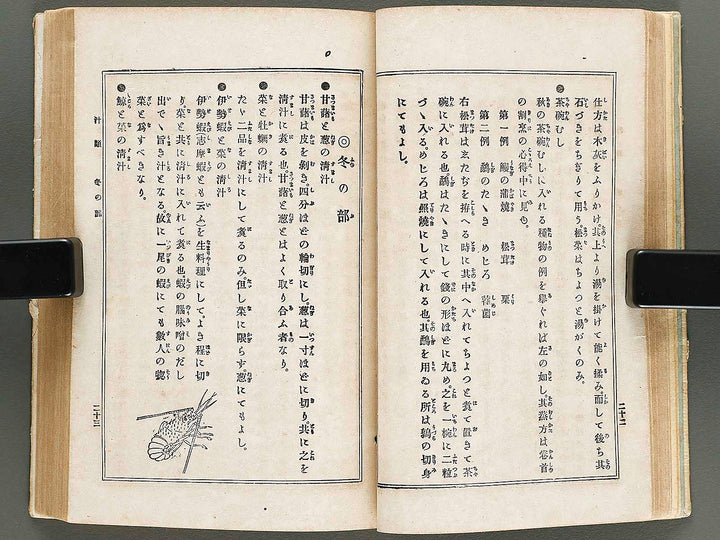 仕方は木灰をふりかけ其上より湯を掛けて能く揉み而して後ち其
石づきをちぎりて用う松菜はちよつと湯がくのみ。
茶碗むし
秋の茶碗むしに入れる種物の例を擧ぐれば左の如し其蒸方は巻首
の割烹の心得中に見ゆ。
第一例 鰻の蒲燒 松茸 栗
第二例 鷸のたゝき めヒろ 菌
右松茸はゑたぢを拵へる時に其中へ入れてちよつと煮て置きて茶
碗に入れる也鷸はたゝきにして の形ほどに丸め之を一椀に二粒
づゝ入るめヒろは照燒にして入れる也其鷸を用ゐる所は鶉の切身
にてもよし。
二十二
◎冬の部
甘藷と葱の清汁
甘藷は皮を剝き四分ほどの輪切にし葱は一寸ほどに切り共に之を
清汁に煮る也甘藷と葱とはよく取り合ふ者なり。
菜と牡蠣の清汁
たゞ二品を清汁にして煮るのみ但し菜に限らず葱にてもよし。
伊勢蝦と菜の清汁
伊勢蝦(志摩蝦とも云ふ)を生料理にしてよき程に切
り菜と共に清汁に入れて煮る也蝦の臓味噌のだし
出でゝ旨き汁となる故に一尾の蝦にても數人の
菜と爲すべきなり。
鯨と菜の清汁
汁類 冬の部
二十三